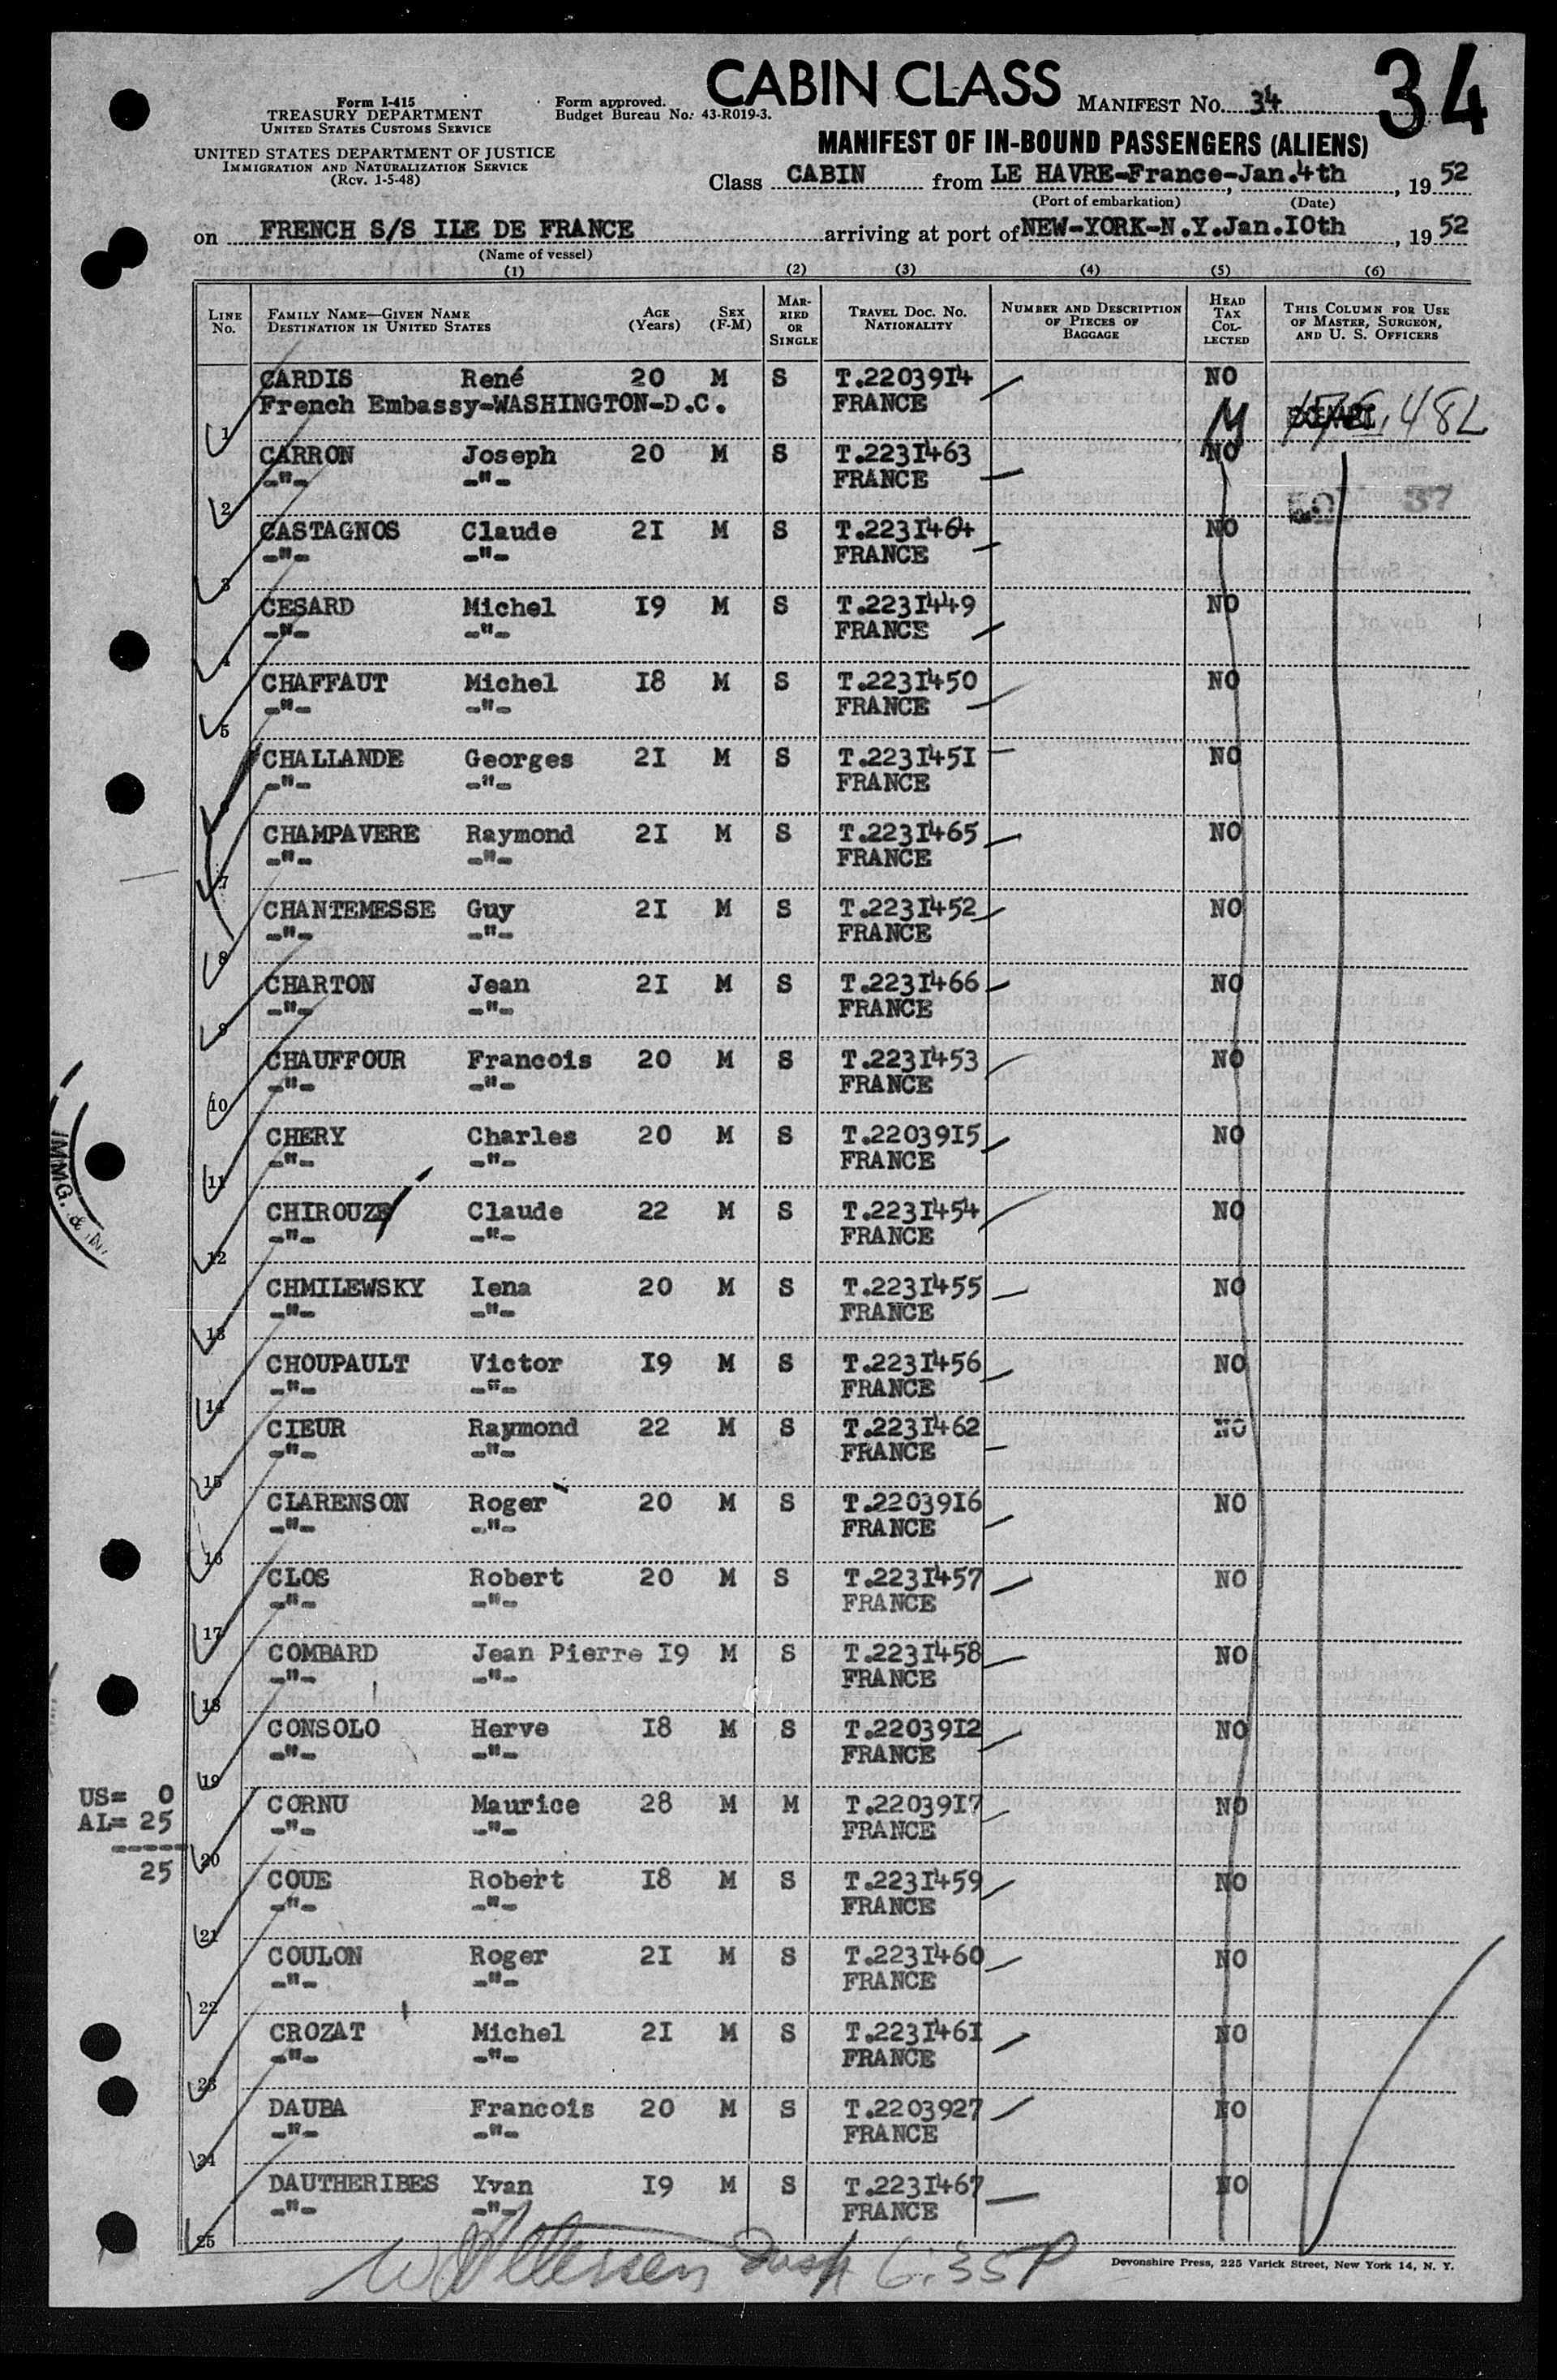 CABIN CLASS
34
Form I-415
TREASURY DEPARTMENT
UNITED STATES CUSTOMS SERVICE
UNITED STATES DEPARTMENT OF JUSTICE
IMMIGRATION AND NATURALIZATION SERVICE
(Rev. 1-5-48)
Form approved.
Budget Bureau No. 43-R019-3.
MANIFEST NO. 34
MANIFEST OF IN-BOUND PASSENGERS (ALIENS)
Class CABIN from LE HAVRE-France-Jan.4th, 1952
(Port of embarkation) (Date)
on FRENCH S/S ILE DE FRANCE arriving at port of NEW-YORK-N.Y.Jan.10th, 1952
(Name of vessel)
(1) (2) (3) (4) (5) (6)
LINE No. FAMILY NAME—GIVEN NAME DESTINATION IN UNITED STATES AGE (Years) SEX (F-M) MARRIED OR SINGLE TRAVEL DOC. NO. NATIONALITY NUMBER AND DESCRIPTION OF PIECES OF BAGGAGE HEAD TAX COLLECTED THIS COLUMN FOR USE OF MASTER, SURGEON, AND U. S. OFFICERS
CARDIS René 20 M S T.2203914 NO
1 French Embassy-WASHINGTON-D.C. FRANCE
CARRON Joseph 20 M S T.2231463 NO
2 -"- -"- FRANCE
CASTAGNOS Claude 21 M S T.2231464 NO
3 -"- -"- FRANCE
CESARD Michel 19 M S T.2231449 NO
4 -"- -"- FRANCE
CHAFFAUT Michel 18 M S T.2231450 NO
5 -"- -"- FRANCE
CHALLANDE Georges 21 M S T.2231451 NO
6 -"- -"- FRANCE
CHAMPAVERE Raymond 21 M S T.2231465 NO
7 -"- -"- FRANCE
CHANTEMESSE Guy 21 M S T.2231452 NO
8 -"- -"- FRANCE
CHARTON Jean 21 M S T.2231466 NO
9 -"- -"- FRANCE
CHAUFFOUR Francois 20 M S T.2231453 NO
10 -"- -"- FRANCE
CHERY Charles 20 M S T.2203915 NO
11 -"- -"- FRANCE
CHIROUZE Claude 22 M S T.2231454 NO
12 -"- -"- FRANCE
CHMILEWSKY Iena 20 M S T.2231455 NO
13 -"- -"- FRANCE
CHOUPAULT Victor 19 M S T.2231456 NO
14 -"- -"- FRANCE
CIEUR Raymond 22 M S T.2231462 NO
15 -"- -"- FRANCE
CLARENSON Roger 20 M S T.2203916 NO
16 -"- -"- FRANCE
CLOS Robert 20 M S T.2231457 NO
17 -"- -"- FRANCE
COMBARD Jean Pierre 19 M S T.2231458 NO
18 -"- -"- FRANCE
CONSOLO Herve 18 M S T.2203912 NO
19 -"- -"- FRANCE
CORNU Maurice 28 M M T.2203917 NO
20 -"- -"- FRANCE
COUE Robert 18 M S T.2231459 NO
21 -"- -"- FRANCE
COULON Roger 21 M S T.2231460 NO
22 -"- -"- FRANCE
CROZAT Michel 21 M S T.2231461 NO
23 -"- -"- FRANCE
DAUBA Francois 20 M S T.2203927 NO
24 -"- -"- FRANCE
DAUTHERIBES Yvan 19 M S T.2231467 NO
25 -"- -"- FRANCE
IMMG. &
US= 0
AL= 25
-----
25
6:35P
Devonshire Press, 225 Varick Street, New York 14, N. Y.